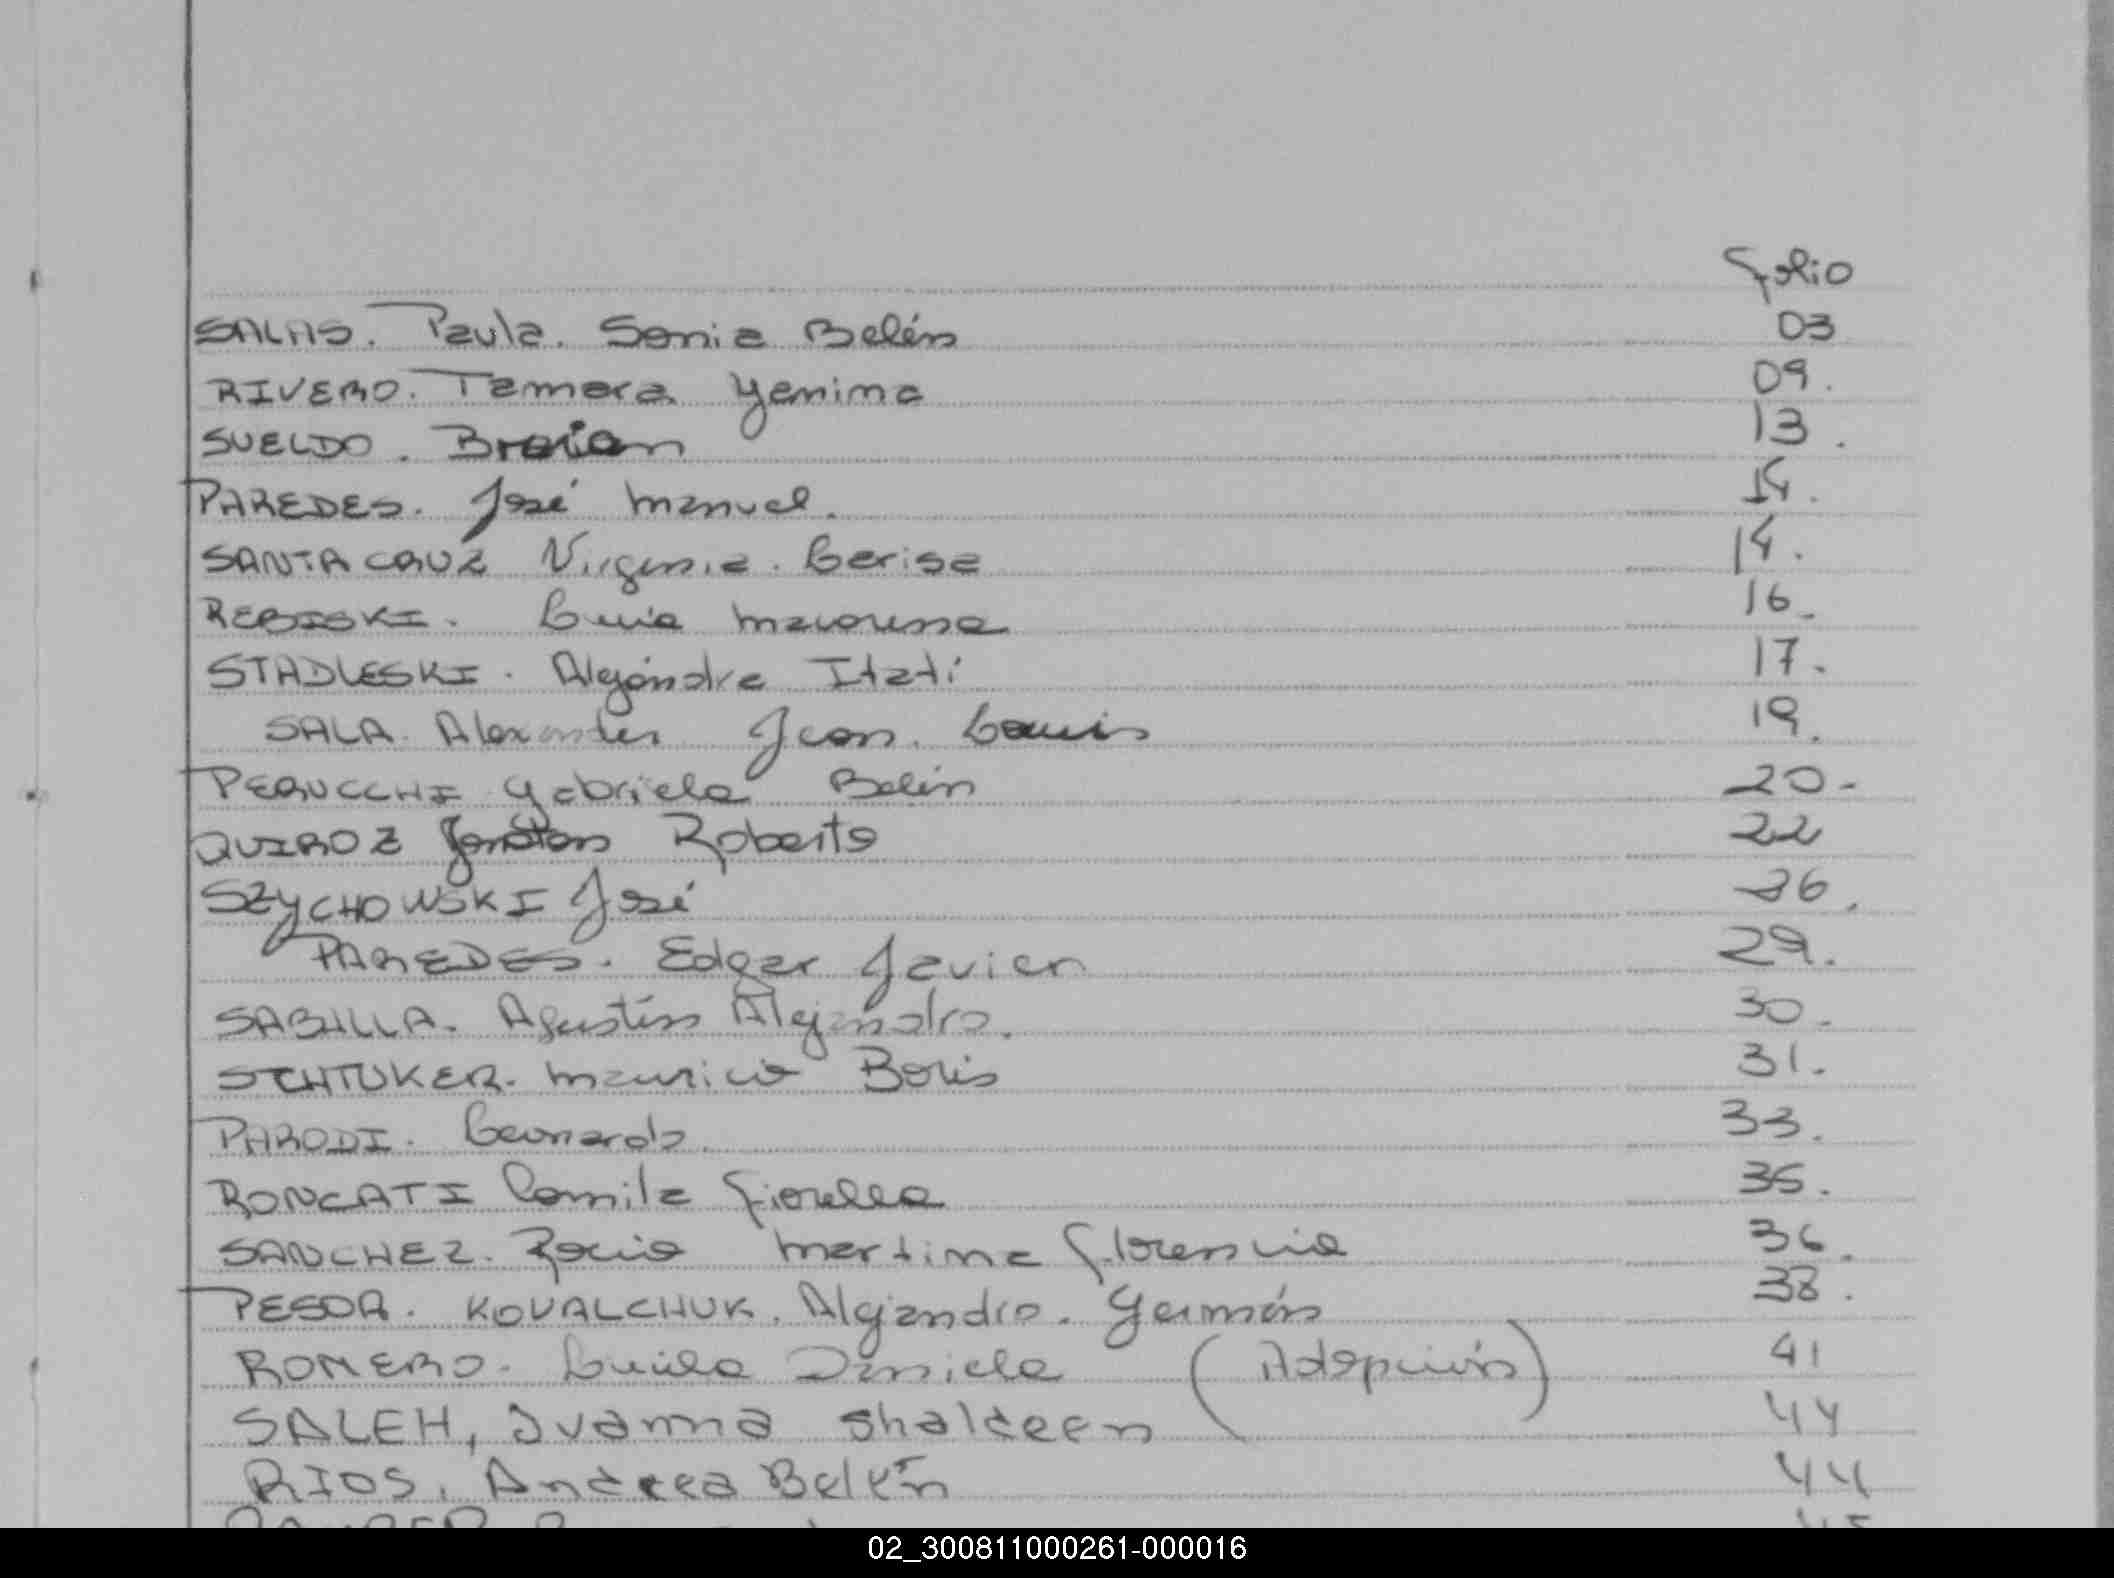 folio
SALAS. Paula. Sonia Belén 03
RIVERO. Tamara Yemima 09.
SUELDO. Braian 13.
PAREDES. José Manuel. 14.
SANTA CRUZ Virginia. Cerisa 14.
REBISKI. Lucia Macarena 16.
STADLESKI. Alejandra Itatí 17.
SALA. Alexander Jean. Louis 19.
PERUCCHI Gabriela Belén 20-
QUIROZ Jonatan Roberto 22
SZYCHOWSKI José 26.
PAREDES. Edgar Javier 29.
SABILLA. Agustín Alejandro. 30.
SCHTUKER. Mauricio Boris 31.
PARODI. Leonardo. 33.
RONCATI Camila Fiorella 35.
SANCHEZ. Rocio Martina Florencia 36.
PESOA. KOVALCHUK. Alejandro. Germán 38.
ROMERO. Lucila Daniela (Adopción) 41
SALEH, Ivanna 44
RIOS, Andrea Belén 44
02_300811000261-000016